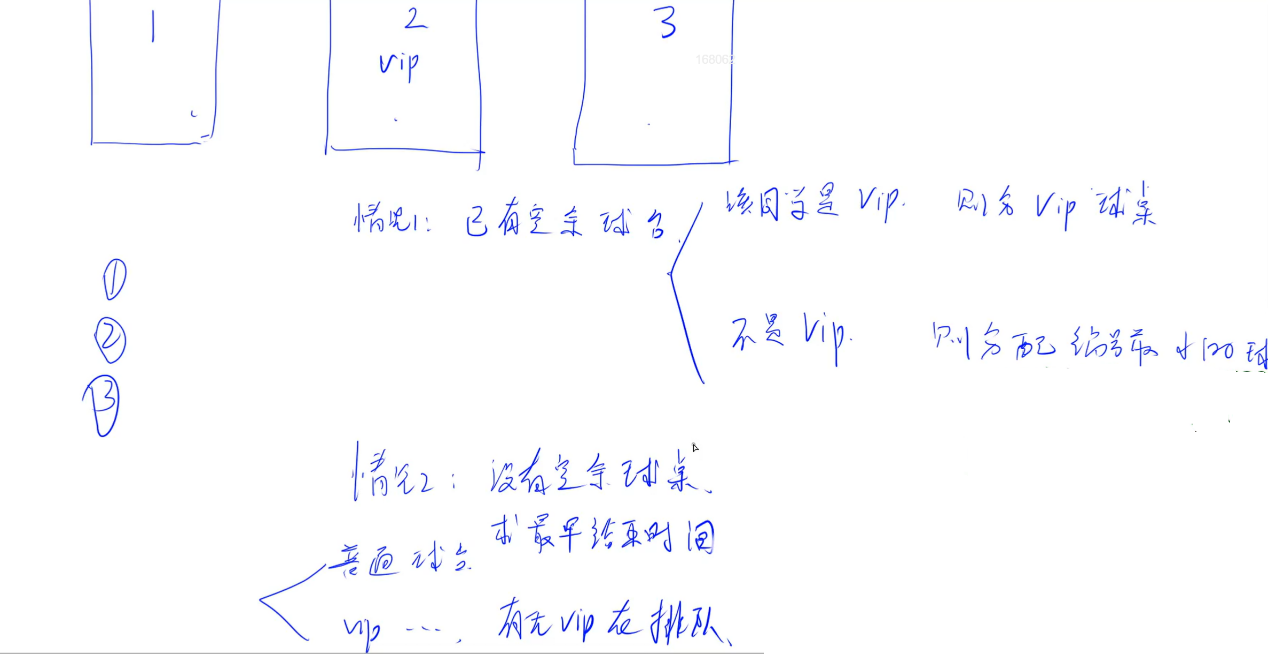 1 2 3
vip
168062
情况1: 已有空余球台. 该同学是 Vip. 则分 Vip 球桌
①
② 不是 Vip. 则分配编号最小的球
③
情况2: 没有空余球桌、
求最早结束时间
普通球台
vip ...., 有无 vip 在排队、